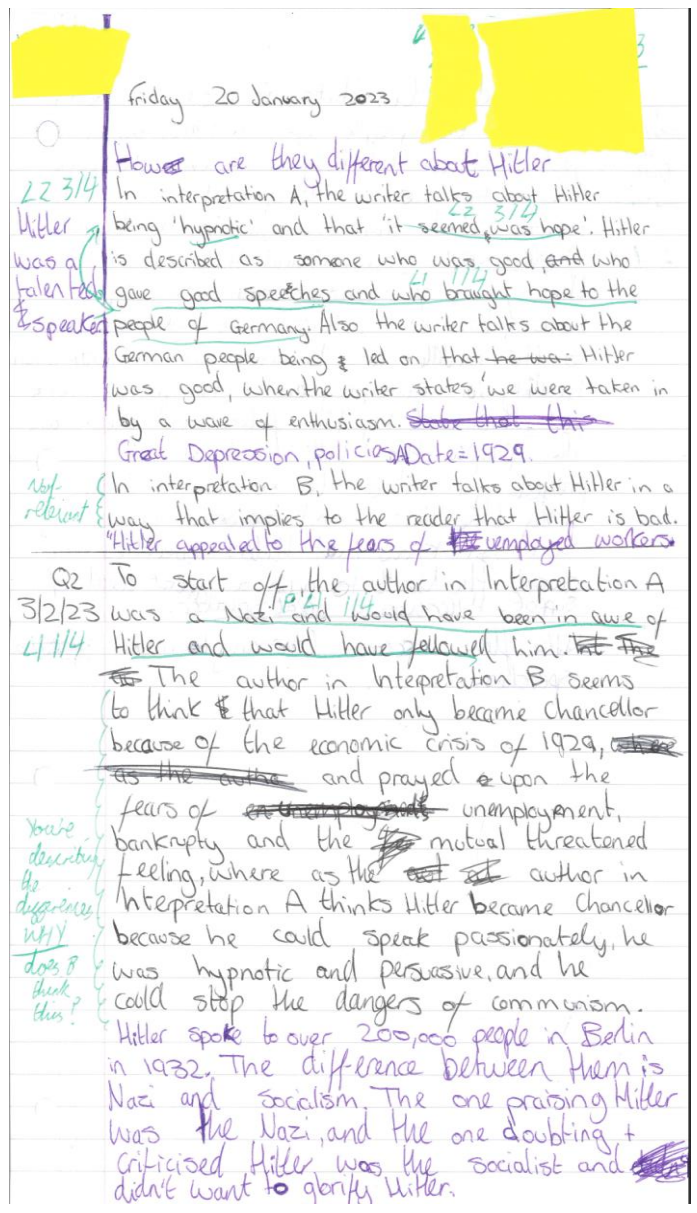 Friday 20 January 2023
How are they different about Hitler
L2 3/4
In interpretation A, the writer talks about Hitler
L2 3/4
Hitler was a talented & speaker
being 'hypnotic' and that 'it seemed, was hope'. Hitler
is described as someone who was good, and who
L1 1/4
gave good speeches and who braught hope to the
people of Germany. Also the writer talks about the
German people being led on that he wa Hitler
was good, when the writer states 'we were taken in
by a wave of enthusiasm. State that this
Great Depression, policies, Date=1929.
Not relevant
In interpretation B, the writer talks about Hitler in a
way that implies to the reader that Hitler is bad.
"Hitler appealed to the fears of uemployed workers.
Q2
To start off, the author in Interpretation A
3/2/23
P L1 1/4
was a Nazi and would have been in awe of
L1 1/4
Hitler and would have fellowed him. The
The author in Intepretation B seems
to think that Hitler only became Chancellor
because of the economic crisis of 1929,
as the autho and prayed upon the
fears of unemployement,
bankrupty and the mutual threatened
feeling, where as the author in
Interpretation A thinks Hitler became Chancellor
because he could speak passionately, he
was hypnotic and persuasive, and he
could stop the dangers of communism.
You're
describing
the
differences
WHY
does B
think
this?
Hitler spoke to over 200,000 people in Berlin
in 1932. The difference between them is
Nazi and Socialism. The one praising Hitler
was the Nazi, and the one doubting +
criticised Hitler was the socialist and
didn't want to glorify Hitler.